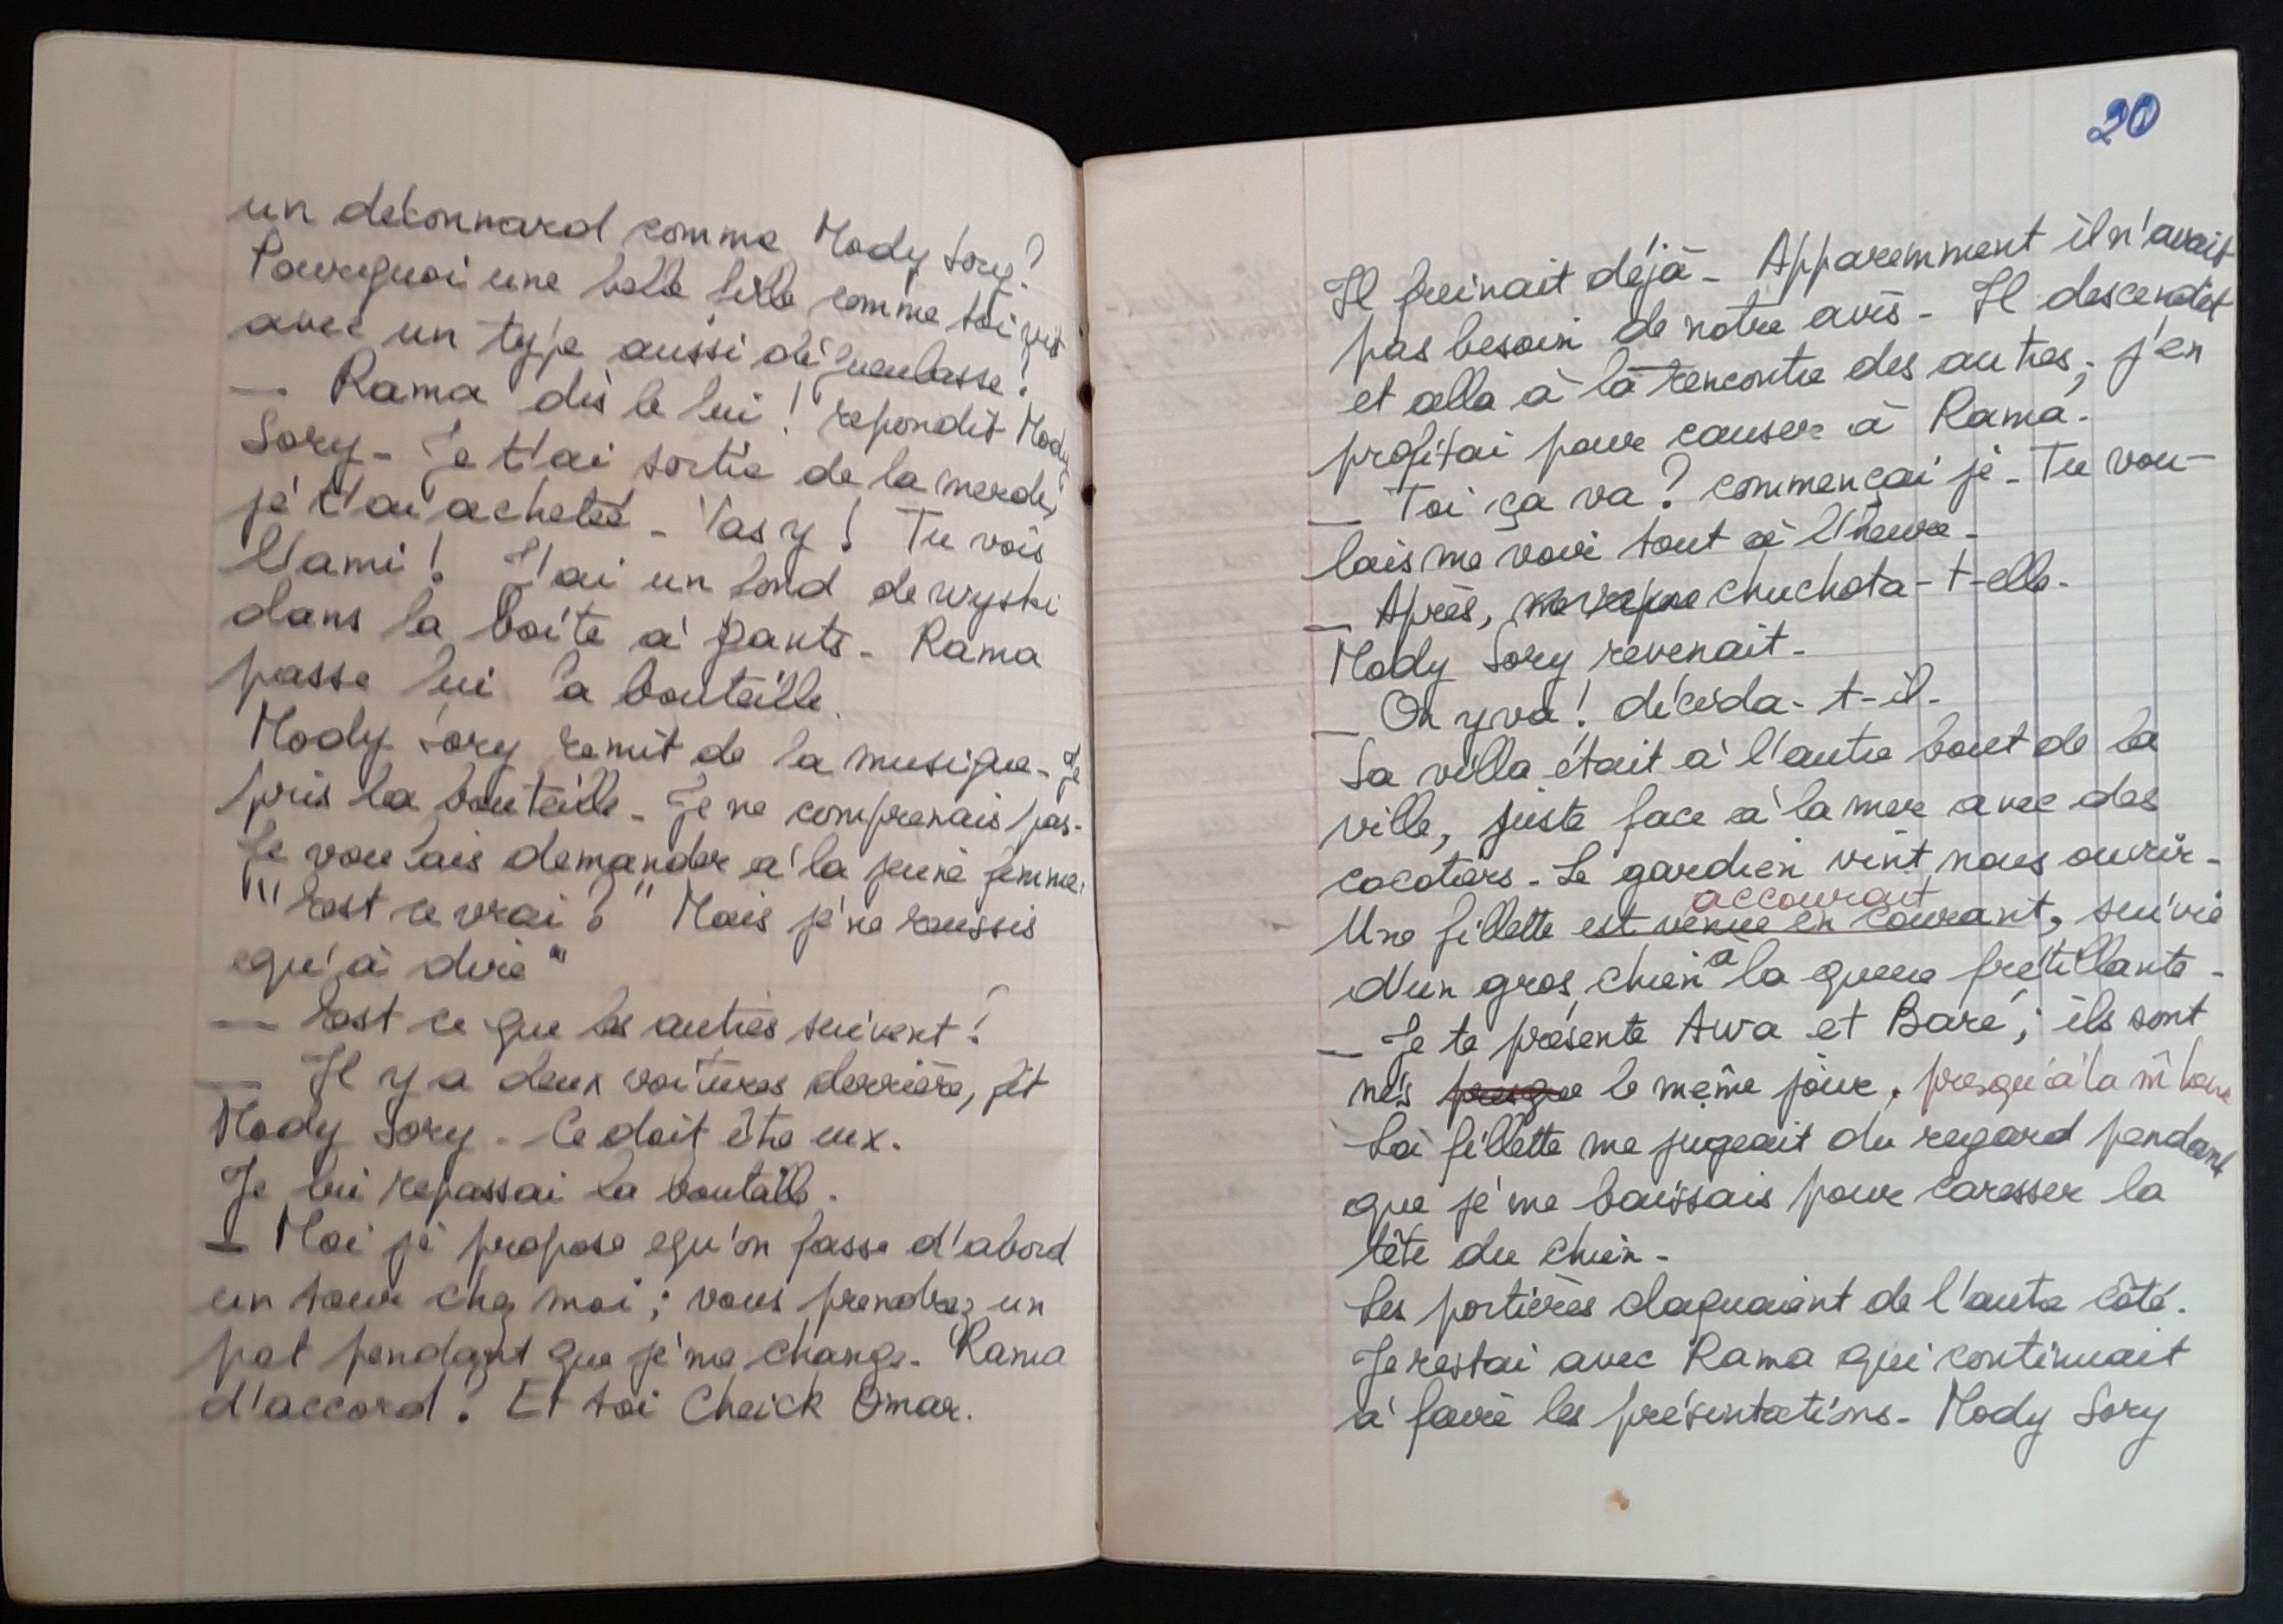 un déconnard comme Mody Sory?
Pourquoi une belle fille comme toi vit
avec un type aussi dégueulasse?
— Rama dis le lui! répondit Mody
Sory - Je t'ai sortie de la merde,
je t'ai achetée - Vas y! Tu vois
l'ami! J'ai un fond de wyski
dans la boîte à gants - Rama
passe lui la bouteille.
Mody Sory remit de la musique - Je
pris la bouteille - Je ne comprenais pas -
Je voulais demander à la jeune femme:
"Est ce vrai?" Mais je ne réussis
qu'à dire"
— Est ce que les autres suivent?
— Il y a deux voitures derrière, fit
Mody Sory - Ce doit être eux.
Je lui repassai la bouteille.
— Moi je propose qu'on fasse d'abord
un tour chez moi; vous prendrez un
pot pendant que je me change - Rama
d'accord? Et toi Cheick Omar.
20
Il freinait déjà - Apparemment il n'avait
pas besoin de notre avis - Il descendit
et alla à la rencontre des autres; j'en
profitai pour causer à Rama.
— Toi ça va? commençai je - Tu vou-
lais me voir tout à l'heure -
— Après, chuchota-t-elle -
Mody Sory revenait -
— On y va! décida-t-il -
Sa villa était à l'autre bout de la
ville, juste face à la mer avec des
cocotiers - Le gardien vint nous ouvrir -
accourait
Une fillette est venue en courant, suivie
d'un gros chien à la queue frétillante -
— Je te présente Awa et Baré; ils sont
nés presque le même jour, presqu'à la m̂ heure
La fillette me jugeait du regard pendant
que je me baissais pour caresser la
tête du chien -
Les portières claquaient de l'autre côté.
Je restai avec Rama qui continuait
à faire les présentations - Mody Sory